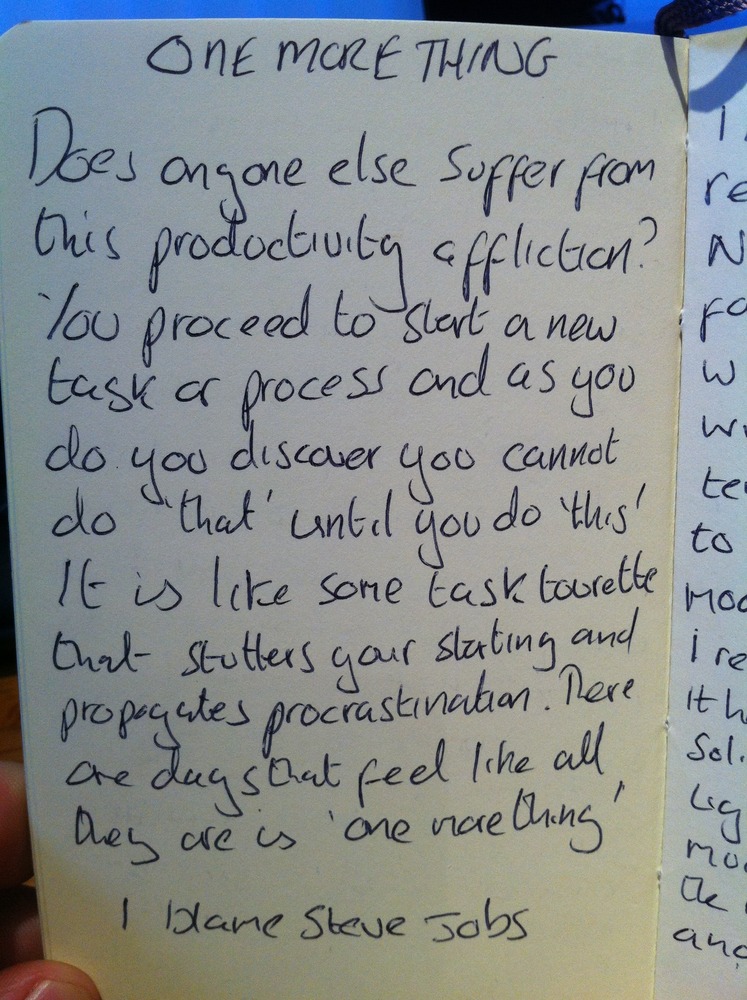 ONE MORE THING
Does anyone else suffer from
this productivity affliction?
You proceed to start a new
task or process and as you
do you discover you cannot
do 'that' until you do 'this'
It is like some task tourette
that stutters your starting and
propagates procrastination. There
are days that feel like all
they are is 'one more thing'
I blame Steve Jobs
I
re
N
fo
w
wr
ter
to
Mod
I re
It h
Sol.
Lig
mo
the
and